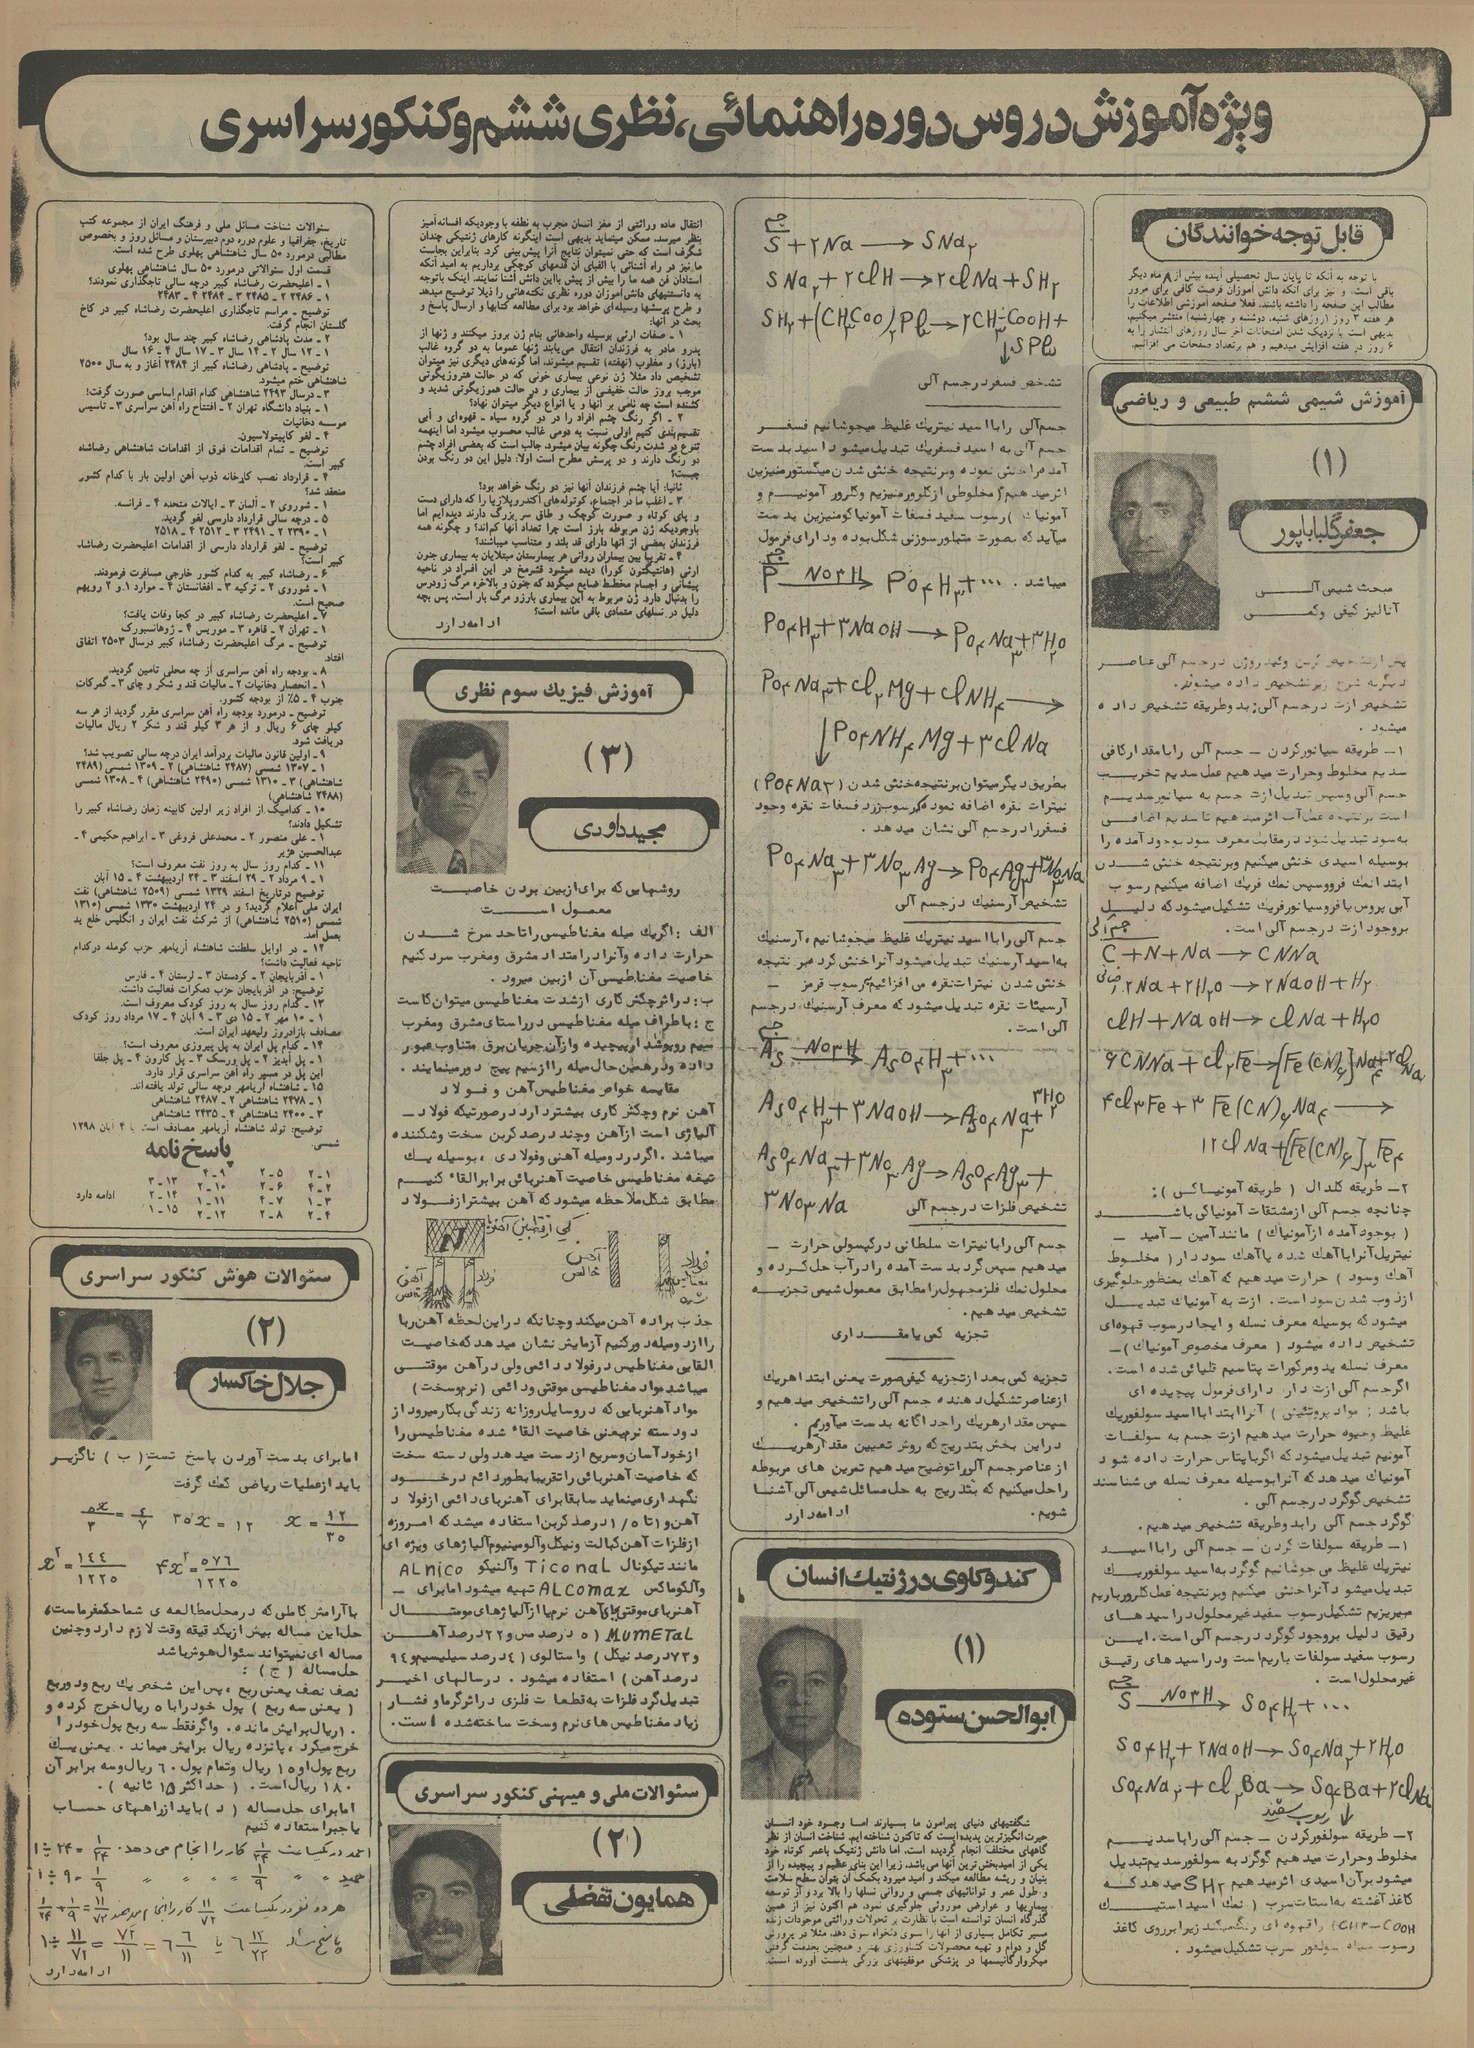 ویژه آموزش دروس دوره راهنمائی، نظری ششم و کنکور سراسری
قابل توجه خوانندگان
با توجه به آنکه تا پایان سال تحصیلی آینده بیش از ۸ ماه دیگر
باقی است، و نیز برای آنکه دانش آموزان فرصت کافی برای مرور
مطالب این صفحه را داشته باشند، فعلا صفحه آموزشی اطلاعات را
هر هفته ۳ روز (روزهای شنبه، دوشنبه و چهارشنبه) منتشر میکنیم.
بدیهی است با نزدیک شدن امتحانات آخر سال روزهای انتشار را به
۶ روز در هفته افزایش میدهیم و هم برتعداد صفحات می افزائیم.
آموزش شیمی ششم طبیعی و ریاضی
(۱)
جعفر گلباباپور
مبحث شیمی آلی
آنالیز کیفی وکمی
پس ازتشخیص کربن وئیدروژن درجسم آلی عناصر
دیگربه شرح زیرتشخیص داده میشوند.
تشخیص ازت درجسم آلی: بدوطریقه تشخیص داده
میشود.
۱ـ طریقه سیانورکردن ـ جسم آلی رابامقدارکافی
سدیم مخلوط وحرارت میدهیم عمل سدیم تخریب
جسم آلی وسپس تبدیل ازت جسم به سیانورسدیم
است برنتیجه عمل آب اثرمیدهیم تاسدیم اضافی
به سود تبدیل شود درمقابت معرف سود بوجودآمده را
بوسیله اسیدی خنثی میکنیم وبرنتیجه خنثی شدن
ابتدانمک فرووسپس نمک فریک اضافه میکنیم رسوب
آبی پروس یافروسیانورفریک تشکیل میشودکه دلیل
بروجودازت درجسم آلی است.
جسم آلی
C + N + Na → CNNa
۲Na + ۲H₂O → ۲NaOH + H₂
ClH + NaOH → ClNa + H₂O
۶CNNa + Cl₂Fe → [Fe(CN)₆]Na₄ + ۲ClNa
۴Cl₃Fe + ۳Fe(CN)₆Na₄ →
۱۲ClNa + [Fe(CN)₆]₃Fe₄
۲ـ طریقه کلدال ( طریقه آمونیاکی ):
چنانچه جسم آلی ازمشتقات آمونیاکی باشد
( بوجودآمده ازآمونیاک) مانندآمین ـ آمید ـ
نیتریل آنراباآهک شده یاآهک سوددار( مخلوط
آهک وسود) حرارت میدهیم که آهک بمنظورجلوگیری
ازذوب شدن سوداست. ازت به آمونیاک تبدیل
میشودکه بوسیله معرف نسله و ایجادرسوب قهوه‌ای
تشخیص داده میشود ( معرف مخصوص آمونیاک)ـ
معرف نسله یدومرکورات پتاسیم قلیائی شده است.
اگرجسم آلی ازت دار، دارای فرمول پیچیده ای
باشد: مواد پروتئینی) آنراابتدابااسید سولفوریک
غلیظ وجیوه حرارت میدهیم ازت جسم به سولفات
آمونیم تبدیل میشودکه اگرباپتاس حرارت داده شود
آمونیاک میدهدکه آنرابوسیله معرف نسله می شناسند
تشخیص گوگرد درجسم آلی.
گوگرد جسم آلی رابدوطریقه تشخیص میدهیم.
۱ـ طریقه سولفات کردن ـ جسم آلی رابااسید
نیتریک غلیظ می جوشانیم گوگردبه اسید سولفوریک
تبدیل میشود آنراخنثی میکنیم وبرنتیجه عمل کلرورباریم
میریزیم تشکیل رسوب سفیدغیرمحلول دراسیدهای
رقیق دلیل بروجودگوگرد درجسم آلی است. این
رسوب سفید سولفات باریم است ودراسیدهای رقیق
غیرمحلول است.
جسم S —NO₃H→ SO₄H₂ + ...
SO₄H₂ + ۲NaOH → SO₄Na₂ + ۲H₂O
SO₄Na₂ + Cl₂Ba → SO₄Ba + ۲ClNa
رسوب سفید
۲ـ طریقه سولفورکردن ـ جسم آلی راباسدیم
مخلوط وحرارت میدهیم گوگرد به سولفورسدیم تبدیل
میشودبرآن اسیدی اثرمیدهیم SH₂ میدهدکه
کاغذ آغشته به استات سرب ( نمک اسیداستیک
CH۳-COOH) راقهوه ای رنگ میکند زیرابرروی کاغذ
رسوب سیاه سولفور سرب تشکیل میشود.
جسم
S + ۲Na → SNa₂
SNa₂ + ۲ClH → ۲ClNa + SH₂
SH₂ + (CH₃COO)₂Pb → ۲CH₃-COOH +
↓SPb
تشخیص فسفردرجسم آلی
جسم آلی رابااسید نیتریک غلیظ میجوشانیم فسفر
جسم آلی به اسیدفسفریک تبدیل میشود اسیدبدست
آمده راخنثی نموده وبرنتیجه خنثی شدن میکستورمنیزین
اثرمیدهیم( مخلوطی ازکلرورمنیزیم وکلرور آمونیم و
آمونیاک ) رسوب سفید فسفات آمونیاکومنیزین بدست
میآیدکه بصورت متبلورسوزنی شکل بوده ودارای فرمول
میباشد.
جسم P —NO₃H→ PO₄H₃ + ...
PO₄H₃ + ۳NaOH → PO₄Na₃ + ۳H₂O
PO₄Na₃ + Cl₂Mg + ClNH₄ →
↓PO₄NH₄Mg + ۳ClNa
بطریق دیگرمیتوان برنتیجه خنثی شدن (PO۴Na۳)
نیترات نقره اضافه نمودکه رسوب زرد فسفات نقره وجود
فسفررادرجسم آلی نشان میدهد.
PO₄Na₃ + ۳NO₃Ag → PO₄Ag₃ + ۳NO₃Na
تشخیص آرسنیک درجسم آلی
جسم آلی رابااسیدنیتریک غلیظ میجوشانیم، آرسنیک
به اسیدآرسنیک تبدیل میشودآنراخنثی کرده برنتیجه
خنثی شدن نیترات نقره می افزائیم رسوب قرمز ـ
آرسیئات نقره تبدیل میشودکه معرف آرسنیک درجسم
آلی است.
جسم As —NO₃H→ AsO₄H₃ + ...
AsO₄H₃ + ۳NaOH → AsO₄Na₃ + ۳H₂O
AsO₄Na₃ + ۳NO₃Ag → AsO₄Ag₃ +
۳NO₃Na
تشخیص فلزات درجسم آلی
جسم آلی رابانیترات سلطانی درکپسولی حرارت ـ
میدهیم سپس گرد بدست آمده رادرآب حل کرده و
محلول نمک فلزمجهول رامطابق معمول شیمی تجزیه
تشخیص میدهیم.
تجزیه کمی یامقداری
تجزیه کمی بعد ازتجزیه کیفی صورت یعنی ابتداهریک
ازعناصرتشکیل دهنده جسم آلی راتشخیص میدهیم و
سپس مقدارهریک راجداگانه بدست میآوریم.
دراین بخش بتدریج که روش تعیین مقدارهریک
ازعناصرجسم آلی راتوضیح میدهیم تمرین های مربوطه
راحل میکنیم که بتدریج به حل مسائل شیمی آلی آشنا
شویم.
ادامه دارد
کندوکاوی در ژنتیک انسان
(۱)
ابوالحسن ستوده
شگفتیهای دنیای پیرامون ما بسیارند اما وجود خود انسان
حیرت انگیزترین پدیده است که تاکنون شناخته ایم. شناخت انسان از نظر
گاههای مختلف انجام گردیده است، اما دانش ژنتیک باعمر کوتاه خود
یکی از امیدبخش ترین آنها می‌باشد، زیرا این بنای عظیم و پیچیده را از
بنیان و ریشه مطالعه میکند و امید میرود بکمک آن بتوان سطح سلامت
و طول عمر و توانائیهای جسمی و روانی نسلها را بالا برد و از توسعه
بیماریها و عوارض موروثی جلوگیری نمود. هم اکنون نیز از همین
گذرگاه انسان توانسته است با نظارت بر تحولات وراثتی موجودات زنده
مسیر تکامل بسیاری از آنها را بسوی دلخواه سوق دهد، مثلا در پرورش
گل و دوام و تهیه محصولات کشاورزی بهتر و همچنین بخدمت گرفتن
میکروارگانیسمها در پزشکی موفقیتهای بزرگی بدست آورده است.
انتقال ماده وراثتی از مغز انسان مجرب به نطفه با وجودیکه افسانه‌آمیز
بنظر میرسد، ممکن مینماید بدیهی است اینگونه کارهای ژنتیکی چندان
شگرف است که حتی نمیتوان نتایج آنرا پیش بینی کرد. بنابراین بجاست
ما نیز در راه آشنائی با الفبای آن قدمهای کوچکی برداریم به امید آنکه
استادان فن همه ما را بیش از پیش بااین دانش آشنا نمایند. اینک باتوجه
به دانستنیهای دانش‌آموزان دوره نظری نکته‌هائی را ذیلا توضیح میدهد
و طرح پرسشها وسیله‌ای خواهد بود برای مطالعه کتابها و ارسال پاسخ و
بحث در آنها:
۱ ـ صفات ارثی بوسیله واحدهائی بنام ژن بروز میکنند و ژنها از
پدرو مادر به فرزندان انتقال می‌یابند ژنها عموما به دو گروه غالب
(بارز) و مغلوب (نهفته) تقسیم میشوند، اما گونه‌های دیگری نیز میتوان
تشخیص داد مثلا ژن نوعی بیماری خونی که در حالت هتروزیگوتی
موجب بروز حالت خفیفی از بیماری و در حالت هموزیگوتی شدید و
کشنده است چه نامی بر آنها و یا انواع دیگر میتوان نهاد؟
۲ ـ اگر رنگ چشم افراد را در دو گروه سیاه ـ قهوه‌ای و آبی
تقسیم‌بندی کنیم اولی نسبت به دومی غالب محسوب میشود اما اینهمه
تنوع در شدت رنگ چگونه بیان میشود. جالب است که بعضی افراد چشم
دو رنگ دارند و دو پرسش مطرح است اولا: دلیل این دو رنگ بودن
چیست؟
ثانیا: آیا چشم فرزندان آنها نیز دو رنگ خواهد بود؟
۳ ـ اغلب ما در اجتماع، کوتوله‌های آکندروپلازیا را که دارای دست
و پای کوتاه و صورت کوچک و طاق سر بزرگ دارند دیده‌ایم اما
باوجودیکه ژن مربوطه بارز است چرا تعداد آنها کم‌اند؟ و چگونه همه
فرزندان بعضی از آنها دارای قد بلند و متناسب میباشند؟
۴ ـ تقریبا بین بیماران روانی هر بیمارستان مبتلایان به بیماری جنون
ارثی (هانتیگتون کورا) دیده میشود قشرمخ در این افراد در ناحیه
پیشانی و اجسام مخطط ضایع میگردد که جنون و بالاخره مرگ زودرس
را بدنبال دارد. ژن مربوط به این بیماری بارزو مرگ بار است، پس بچه
دلیل در نسلهای متمادی باقی مانده است؟
ادامه دارد
آموزش فیزیک سوم نظری
(۳)
مجید داودی
روشهایی که برای ازبین بردن خاصیت
معمول است
الف: اگریک میله مغناطیسی راتاحد سرخ شدن
حرارت داده وآنرادرامتداد مشرق ومغرب سردکنیم
خاصیت مغناطیسی آن ازبین میرود.
ب: دراثرچکش کاری ازشدت مغناطیسی میتوان کاست
ج: باطراف میله مغناطیسی درراستای مشرق ومغرب
سیم روپوشدارپیچیده وازآن جریان برق متناوب عبور
داده ودرهمین حال میله راازسیم پیچ دورمینمایند.
مقایسه خواص مغناطیسی آهن و فولاد
آهن نرم وچکش کاری بیشتردارددرصورتیکه فولاد ـ
آلیاژی است ازآهن وچنددرصدکربن سخت وشکننده
میباشد. اگردرد وسیله آهنی وفولادی، بوسیله یک
تیغه مغناطیسی خاصیت آهنربائی برابرالقاء کنیم
مطابق شکل ملاحظه میشودکه آهن بیشترازفولاد
N
آهن خالص
فولاد
جذب براده آهن میکند وچنانکه دراین لحظه آهن ربا
راازد وسیله دورکنیم آزمایش نشان میدهدکه خاصیت
القایی مغناطیس درفولاد دائمی ولی درآهن موقتی
میباشد مواد مغناطیسی موقتی ودائمی ( نرم وسخت)
مواد آهنربایی که دروسایل روزانه زندگی بکارمیرود از
دودسته نرم یعنی خاصیت القاء شده مغناطیسی را
ازخود آسان وسریع ازدست میدهد ولی دسته سخت
که خاصیت آهنربائی راتقریبابطوردائم درخود
نگهداری مینماید سابقابرای آهنربای دائمی ازفولاد و
آهن و۱ تا ۱/۵ درصدکربن استفاده میشد که امروزه
ازفلزات آهن کبالت ونیکل وآلومینیوم آلیاژهای ویژه ای
مانند تیکونال Ticonal وآلنیکو ALnico
وآلکوماکس ALcomax تهیه میشود امابرای ـ
آهنربای موقتی بجای آهن نرم باازآلیاژهای مومتال
MUMETAL (۵ درصدمس و۲۲درصدآهن
و۷۳درصدنیکل) و استالوی (۴درصدسیلیسیم و۹۴
درصدآهن) استفاده میشود. درسالهای اخیر
تبدیل گرد فلزات به قطعات فلزی دراثرگرماوفشار
زیاد مغناطیس های نرم وسخت ساخته شده است.
سئوالات ملی و میهنی کنکور سراسری
(۲)
همایون تفضلی
سئوالات شناخت مسائل ملی و فرهنگ ایران از مجموعه کتب
تاریخ، جغرافیا و علوم دوره دوم دبیرستان و مسائل روز و بخصوص
مطالبی درمورد ۵۰ سال شاهنشاهی پهلوی طرح شده است.
قسمت اول سئوالاتی درمورد ۵۰ سال شاهنشاهی پهلوی
۱ ـ اعلیحضرت رضاشاه کبیر درچه سالی تاجگذاری نمودند؟
۱ ـ ۲۴۸۶ ۲ ـ ۲۴۸۵ ۳ ـ ۲۴۸۴ ۴ ـ ۲۴۸۳
توضیح ـ مراسم تاجگذاری اعلیحضرت رضاشاه کبیر در کاخ
گلستان انجام گرفت.
۲ ـ مدت پادشاهی رضاشاه کبیر چند سال بود؟
۱ ـ ۱۲ سال ۲ ـ ۱۳ سال ۳ ـ ۱۷ سال ۴ ـ ۱۶ سال
توضیح ـ پادشاهی رضاشاه کبیر از ۲۴۸۴ آغاز و به سال ۲۵۰۰
شاهنشاهی ختم میشود.
۳ ـ درسال ۲۴۹۳ شاهنشاهی کدام اقدام اساسی صورت گرفت؟
۱ ـ بنیاد دانشگاه تهران ۲ ـ افتتاح راه آهن سراسری ۳ ـ تاسیس
موسسه دخانیات
۴ ـ لغو کاپیتولاسیون.
توضیح ـ تمام اقدامات فوق از اقدامات شاهنشاهی رضاشاه
کبیر است.
۴ ـ قرارداد نصب کارخانه ذوب آهن اولین بار با کدام کشور
منعقد شد؟
۱ ـ شوروی ۲ ـ آلمان ۳ ـ ایالات متحده ۴ ـ فرانسه.
۵ ـ درچه سالی قرارداد دارسی لغو گردید.
۱ ـ ۲۳۹۰ ۲ ـ ۲۴۹۱ ۳ ـ ۲۵۱۲ ۴ ـ ۲۵۱۸
توضیح ـ لغو قرارداد دارسی از اقدامات اعلیحضرت رضاشاه
کبیر است؟
۶ ـ رضاشاه کبیر به کدام کشور خارجی مسافرت فرمودند.
۱ ـ شوروی ۲ ـ ترکیه ۳ ـ افغانستان ۴ ـ موارد ۱ـ و ۲ رویهم
صحیح است.
۷ ـ اعلیحضرت رضاشاه کبیر در کجا وفات یافت؟
۱ ـ تهران ۲ ـ قاهره ۳ ـ موریس ۴ ـ ژوهانسبورک
توضیح ـ مرگ اعلیحضرت رضاشاه کبیر درسال ۲۵۰۳ اتفاق
افتاد.
۸ ـ بودجه راه آهن سراسری از چه محلی تامین گردید.
۱ ـ انحصار دخانیات ۲ ـ مالیات قند و شکر و چای ۳ ـ گمرکات
جنوب ۴ ـ ۵٪ از بودجه کشور.
توضیح ـ درمورد بودجه راه آهن سراسری مقرر گردید از هر سه
کیلو چای ۶ ریال و از هر ۳ کیلو قند و شکر ۲ ریال مالیات
دریافت شود.
۹ ـ اولین قانون مالیات بردرآمد ایران درچه سالی تصویب شد؟
۱ ـ ۱۳۰۷ شمسی (۲۴۸۷ شاهنشاهی) ۲ ـ ۱۳۰۹ شمسی (۲۴۸۹
شاهنشاهی) ۳ ـ ۱۳۱۰ شمسی (۲۴۹۰ شاهنشاهی) ۴ ـ ۱۳۰۸ شمسی
(۲۴۸۸ شاهنشاهی)
۱۰ ـ کدامیک از افراد زیر اولین کابینه زمان رضاشاه کبیر را
تشکیل دادند؟
۱ ـ علی منصور ۲ ـ محمدعلی فروغی ۳ ـ ابراهیم حکیمی ۴ ـ
عبدالحسین هژیر
۱۱ ـ کدام روز سال به روز نفت معروف است؟
۱ ـ ۹ مرداد ۲ ـ ۲۹ اسفند ۳ ـ ۲۴ اردیبهشت ۴ ـ ۱۵ آبان
توضیح درتاریخ اسفند ۱۳۲۹ شمسی (۲۵۰۹ شاهنشاهی) نفت
ایران ملی اعلام گردید؟ و در ۲۴ اردیبهشت ۱۳۳۰ شمسی (۱۳۱۰
شمسی) (۲۵۱۰ شاهنشاهی) از شرکت نفت ایران و انگلیس خلع ید
بعمل آمد.
۱۲ ـ در اوایل سلطنت شاهنشاه آریامهر حزب کومله درکدام
ناحیه فعالیت داشت؟
۱ ـ آذربایجان ۲ ـ کردستان ۳ ـ لرستان ۴ ـ فارس
توضیح: در آذربایجان حزب دمکرات فعالیت داشت.
۱۳ ـ کدام روز سال به روز کودک معروف است.
۱ ـ ۱۰ مهر ۲ ـ ۱۵ دی ۳ ـ ۹ آبان ۴ ـ ۱۷ مرداد روز کودک
مصادف بازادروز ولیعهد ایران است.
۱۴ ـ کدام پل ایران به پل پیروزی معروف است؟
۱ ـ پل آبدیز ۲ ـ پل ورسک ۳ ـ پل کارون ۴ ـ پل جلفا
این پل در مسیر راه آهن سراسری قرار دارد.
۱۵ ـ شاهنشاه آریامهر درچه سالی تولد یافته‌اند.
۱ ـ ۲۴۷۸ شاهنشاهی ۲ ـ ۲۴۸۷ شاهنشاهی
۳ ـ ۲۴۰۰ شاهنشاهی ۴ ـ ۲۴۳۵ شاهنشاهی
توضیح: تولد شاهنشاه آریامهر مصادف است با ۴ آبان ۱۲۹۸
شمسی.
پاسخ نامه
۱ـ۲ ۵ـ۲ ۹ـ۴ ۱۳ـ۳
۲ـ۴ ۶ـ۲ ۱۰ـ۲ ۱۴ـ۲
۳ـ۱ ۷ـ۴ ۱۱ـ۱ ۱۵ـ۱
۴ـ۲ ۸ـ۲ ۱۲ـ۲
ادامه دارد
سئوالات هوش کنکور سراسری
(۲)
جلال خاکسار
امابرای بدست آوردن پاسخ تست ( ب ) ناگزیر
باید ازعملیات ریاضی کمک گرفت
۵x/۳ = ۴/۷ ۳۵x = ۱۲ x = ۱۲/۳۵
x² = ۱۴۴/۱۲۲۵ ۴x² = ۵۷۶/۱۲۲۵
باآرامش کاملی که درمحل مطالعه ی شماحکمفرماست،
حل این مساله بیش ازیکدقیقه وقت لازم داردوچنین
مساله ای نمیتواند سئوال هوش باشد
حل مساله ( ج ):
نصف نصف یعنی ربع، پس این شخص یک ربع ودوربع
( یعنی سه ربع ) پول خودرابا ۵ ریال خرج کرده و
۱۰ریال برایش مانده. واگرفقط سه ربع پول خودرا
خرج میکرد، پانزده ریال برایش میماند. یعنی یک
ربع پول او۱۵ ریال وتمام پول ۶۰ ریال وسه برابرآن
۱۸۰ ریال است. ( حداکثر ۱۵ ثانیه ).
امابرای حل مساله ( د ) باید ازراههای حساب
یاجبراستفاده کنیم
احمد دریکساعت ۱/۲۴ کار را انجام می دهد. ۱÷۲۴=۱/۲۴
حمید " " ۱/۹ " " " ۱÷۹=۱/۹
هر دو نفر در یکساعت ۱۱/۷۲ کار را انجام میدهند ۱/۹+۱/۲۴=۱۱/۷۲
۱÷۱۱/۷۲=۷۲/۱۱=۶ ۶/۱۱ یا ۶ ۱۲/۲۲
ادامه دارد